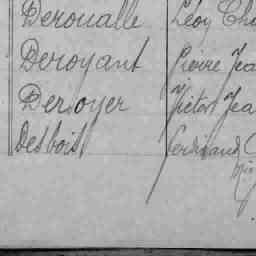 Deroualle Léon Cha
Deroyant Pierre Jea
Deroyer Victor Jea
Desbois Ferdinand